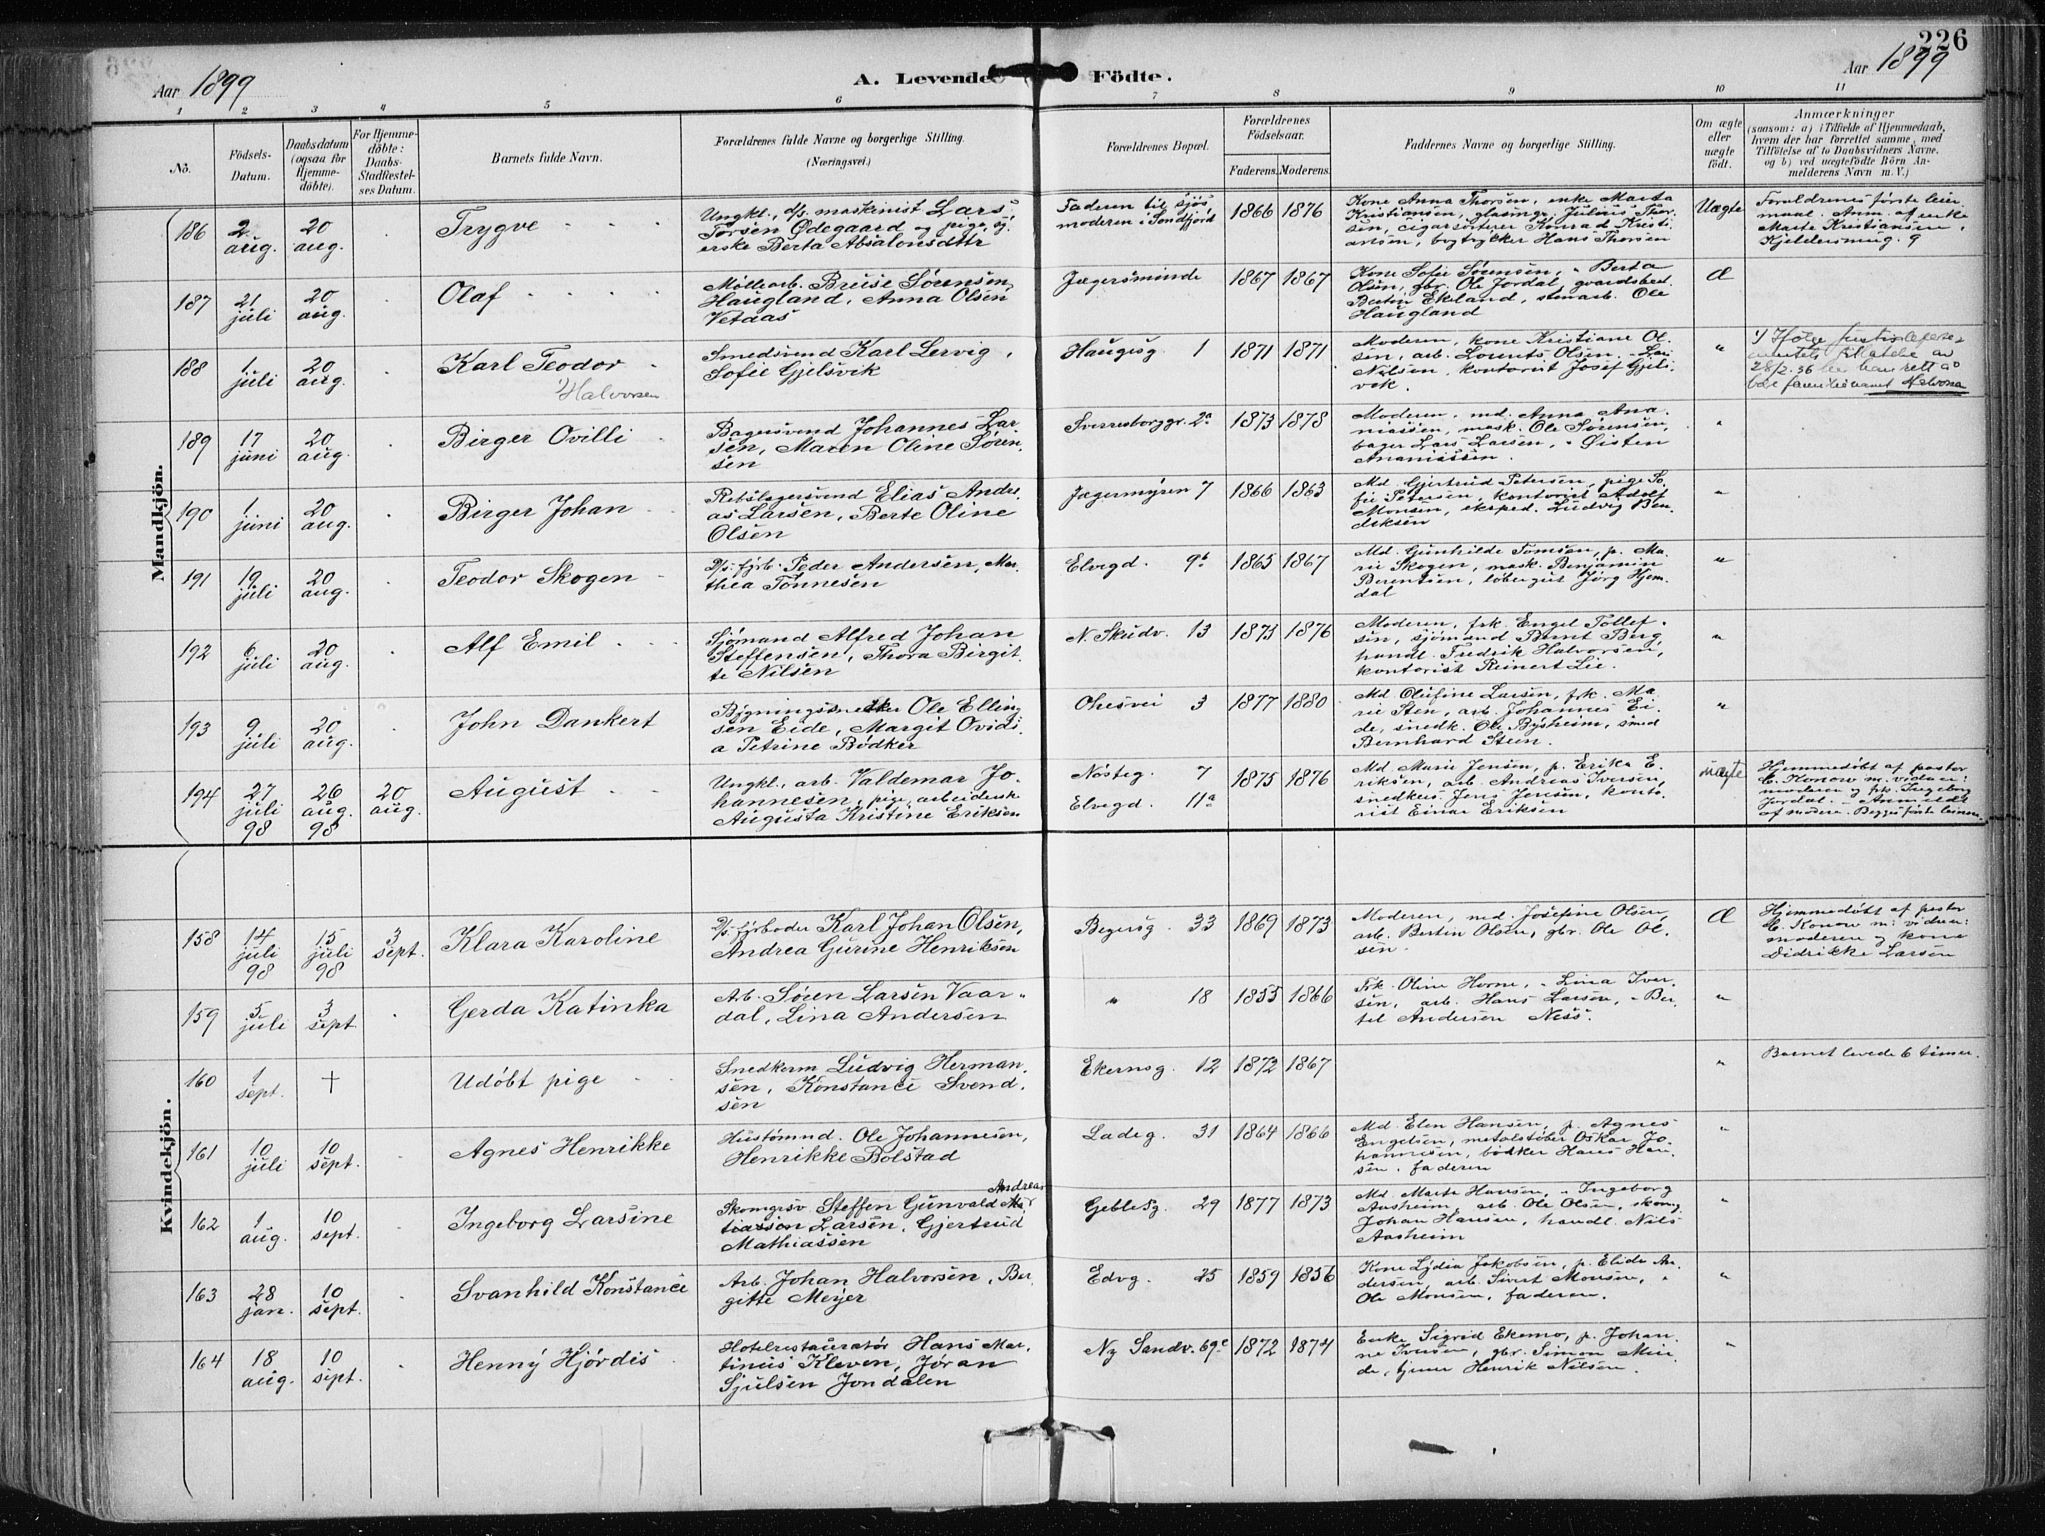 226
Aar 1899
A. Levende Födte.
Aar 1899
1 2 3 4 5 6 7 8 9 10 11
No.
Födsels-
Datum.
Daabsdatum
(ogsaa for
Hjemme-
döbte).
For Hjemme-
döbte:
Daabs-
Stadfæstel-
ses Datum.
Barnets fulde Navn.
Forældrenes fulde Navne og borgerlige Stilling.
(Næringsvei.)
Forældrenes Bopæl.
Forældrenes
Födselsaar.
Faderens. Moderens.
Faddernes Navne og borgerlige Stilling.
Om ægte
eller
uægte
födt.
Anmærkninger
(saasom: a) i Tilfælde af Hjemmedaab,
hvem der har forrettet samme, med
Tilföielse af to Daabsvidners Navne,
og b) ved uægtefödte Börn An-
melderens Navn m. V.)
Mandkjön.
186
2
aug.
20
aug.
Trygve
Ungkl., d/s. maskinist Lars
Torsen Ødegaard og pige, sy-
erske Berta Absalonsdttr
Faderen til sjøs,
moderen i Sandfjord
1866 1876
Kone Anna Thorsen, enke Marta
Kristiansen, glasmgr. Julius Thor-
sen, cigarsorterer Konrad Kristi-
ansen, bogtrykker Hans Thorsen
Uægte
Forældrenes første leier-
maal. Anm. af enke
Marte Kristiansen,
Kjeldersmug. 9
187
21
juli
20
aug.
Olaf
Møllearb. Breise Sørensen
Haugland, Anna Olsen
Vetaas
Jægersminde
1867 1867
Kone Sofie Sørensen, " Berta
Olsen, gbr. Ole Jordal, gaardsbest.
Bertin Ekeland, stenarb. Ole
Haugland
Æ
188
1
juli
20
aug.
Karl Teodor
1) Halvorsen
Smedsvend Karl Lervig,
Sofie Gjelsvik
Haugesg. 1
1871 1871
Moderen, kone Kristiane Ol-
sen, arb. Lorents Olsen, " Lar
Nilsen, kontorist Josef Gjels-
vik.
"
1) Ifølge justisdeparte-
mentets tillatelse av
28/2.36 har han rett til å
bære familienavnet Halvorsen
189
17
juni
20
aug.
Birger Ovilli
Bagersvend Johannes Lar-
sen, Maren Oline Søren-
sen
Sverresborggr. 2a
1873 1878
Moderen, md. Anna Ana-
niassen, mask. Ole Sørensen,
bager Lars Larsen, " Øisten
Ananiassen.
"
190
1
juni
20
aug.
Birger Johan
Rebslagersvend Elias Andre-
as Larsen, Berte Oline
Olsen
Jægermyren 7
1866 1863
Md. Gjertrud Petersen, pige So-
fie Petersen, kontorist Adolf
Monsen, eksped. Ludvig Ben-
diksen
"
191
19
juli
20
aug.
Teodor Skogen
D/s. fyrb. Peder Andersen, Mar-
thea Tønnesen
Elvegd. 9b
1865 1867
Md. Gunhilde Tomsen, p. Ma-
rie Skogen, mask. Benjamin
Berentsen, løbergut Jørg Hjem-
dal
"
192
6
juli
20
aug.
Alf Emil
Sjømand Alfred Johan
Steffensen, Thora Birgit-
te Nilsen
N. Skudv. 13
1873 1876
Moderen, frk. Engel Tollef-
sen, sjømand Bernt Berg,
handl. Fredrik Halvorsen,
kontorist Reinert Lie.
"
193
9
juli
20
aug.
John Dankert
Bygningssnekker Ole Elling-
sen Eide, Margit Ovidi-
a Petrine Bødker
Ohesvei 3
1877 1880
Md. Olufine Larsen, frk. Ma-
rie Sten, arb. Johannes Ei-
de, snedk. Ole Bysheim, smed
Bernhard Steen.
"
194
27
juli
98
26
aug.
98
20
aug.
August
Ungkl., arb. Valdemar Jo-
hannesen, pige, arbeiderske
Augusta Kristine Eriksen
Nøsteg. 7
Elvegd. 11a
1875 1876
Md. Marie Jensen, p. Erika E-
riksen, arb. Andreas Iversen,
snedkers. Jens Jensen, konto-
rist Einar Eriksen
uægte
Hjemmedøbt af pastor
C. Konow m: vidner:
moderen og frk. Ingeborg
Jordal. - Anmeldt
af modern. Begges første leierm.
Kvindekjön.
158
14
juli
98
15
juli
98
3
sept.
Klara Karoline
D/s. fyrbøder Karl Johan Olsen,
Andrea Gurine Henriksen
Begersg. 33
1869 1873
Moderen, md. Josefine Olsen,
arb. Bertin Olsen, gbr. Ole Ol-
sen.
Æ
Hjemmedøbt af pastor
C. Konow m: vidner:
moderen og kone
Didrikke Larsen
159
5
juli
3
sept
Gerda Katinka
Arb. Søren Larsen Vaar-
dal, Lina Andersen
" 18
1855 1866
Frk. Oline Horne, " Lina Iver-
sen, arb. Hans Larsen, " Ber-
tel Andersen Ness.
"
160
1
sept.
+
Udøbt pige
Snedkerm Ludvig Herman-
sen, Konstance Svend-
sen
Ekernsg. 12
1872 1867
"
Barnet levede 6 timer.
161
10
juli
10
sept.
Agnes Henrikke
Hustømmd. Ole Johannesen,
Henrikke Bolstad
Ladeg. 31
1864 1866
Md. Elen Hansen, p. Agnes
Engelsen, metalstøber Oskar Jo-
hannesen, bødker Hans Han-
sen, faderen
"
162
1
aug.
10
sept.
Ingeborg Larsine
Andreas
Skomgrsv Steffen Gunvald Ma-
tiassen Larsen, Gjertrud
Mathiassen
Geblesg. 29
1877 1873
Md. Marta Hansen, " Ingeborg
Aasheim, arb. Ole Olsen, skomg.
Johan Hansen, handl. Nils
Aasheim
"
163
28
jan.
10
sept.
Svanhild Konstance
Arb. Johan Halvorsen, Ber-
gitte Meyer
Edvg. 25
1859 1856
Kone Lydia Jakobsen, p. Elida An-
dersen, arb. Sivert Monsen, "
Ole Monsen, faderen.
"
164
18
aug.
10
sept.
Henny Hjørdis
Hotelrestauratør Hans Mar-
tinus Kleven, Jøran
Sjulsen Jondalen
Ny Sandv. 69c
1872 1874
Enke Sigrid Ekerno, p. Johan-
ne Iversen, gbr. Simon Min-
de, tjener Henrik Nilsen.
"